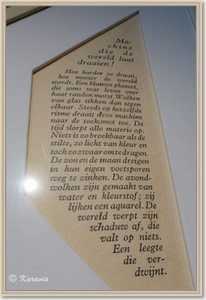 Ma-
chine
die de
wereld laat
draaien!
Hoe harder ze draait,
hoe mooier de wereld
wordt. Een blauwe planeet,
die soms wat leven over
haar randen morst. Wolken
van glas tikken dan tegen
elkaar. Steeds op hetzelfde
ritme draait deze machine
naar de toekomst toe. De
tijd slorpt alle materie op.
Niets is zo breekbaar als de
stilte, zo licht van kleur en
toch zo zwaar om te dragen.
De zon en de maan dreigen
in hun eigen voetsporen
weg te zinken. De avond-
wolken zijn gemaakt van
water en kleurstof; zij
lijken een aquarel. De
wereld werpt zijn
schaduw af, die
valt op niets.
Een leegte
die ver-
dwijnt.
© Karania